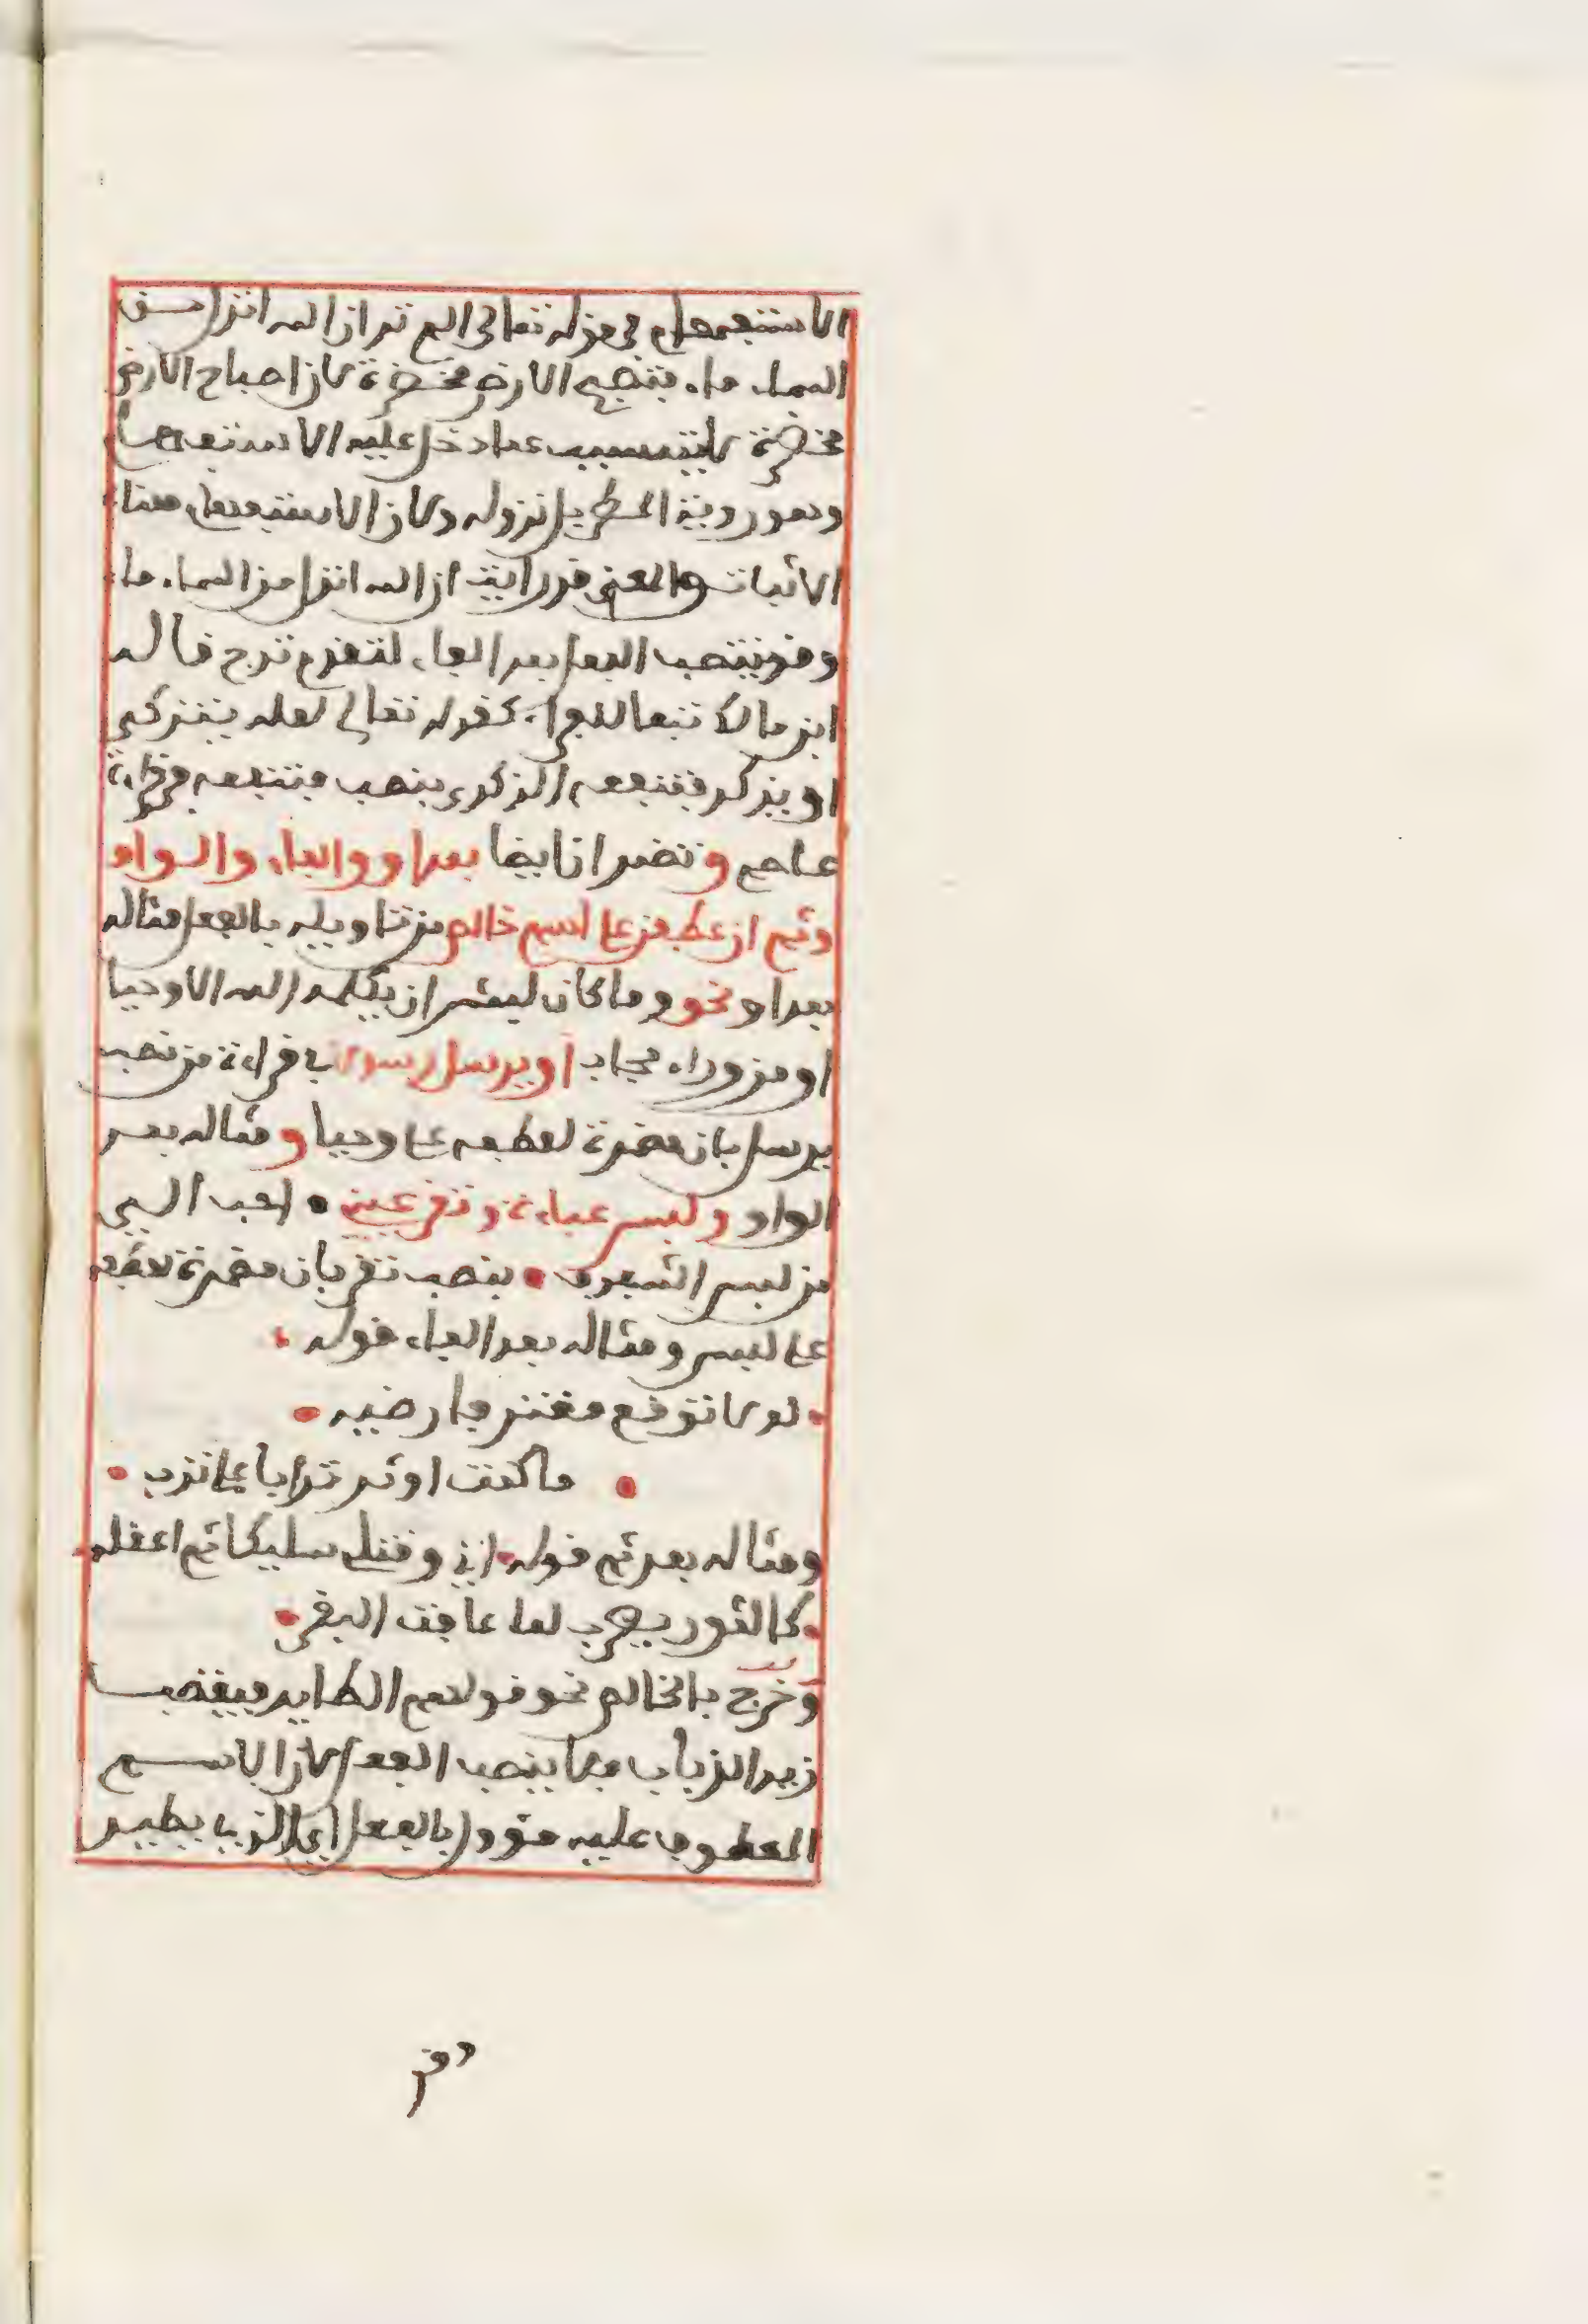 الاستفهام في قوله تعالى الم تر ان الله انزل من
السماء ماء فتصبح الارض مخضرة لان اصباح الارض
مخضرة لا يتسبب عما دخل عليه الاستفهام
وهو روية المطر بل نزوله ولان الاستفهام معناه
الاثبات والمعنى قد رايت ان الله انزل من السماء ماء
وقد ينتصب الفعل بعد الفاء لتقدم ترج قاله
ابن مالك تبعا للفراء كقوله تعالى لعله يتزكى
او يذكر فتنفعه الذكرى بنصب فتنفعه في قراءة
عاصم وتضمر ان ايضا بعد او والفاء والواو
وثم ان عطفن على اسم خالص من تاويله بالفعل مثاله
بعد او نحو وما كان لبشر ان يكلمه الله الا وحيا
او من وراء حجاب او يرسل رسولا في قراءة من نصب
يرسل بان مضمرة لعطفه على وحيا ومثاله بعد
الواو ولبس عباءة وتقر عيني • احب الي
من لبس الشفوف • بنصب تقر بان مضمرة لعطفه
على لبس ومثاله بعد الفاء قوله •
• لولا توقع معتر فارضيه •
• ما كنت اوثر ترابا على ترب •
ومثاله بعد ثم قوله • اني وقتلي سليكا ثم اعقله
• كالثور يضرب لما عافت البقر •
وخرج بالخالص نحو قولهم الطاير فيغضب
زيد الذباب فلا ينصب الفعل لان الاسم
المعطوف عليه مؤول بالفعل اي الذي يطير